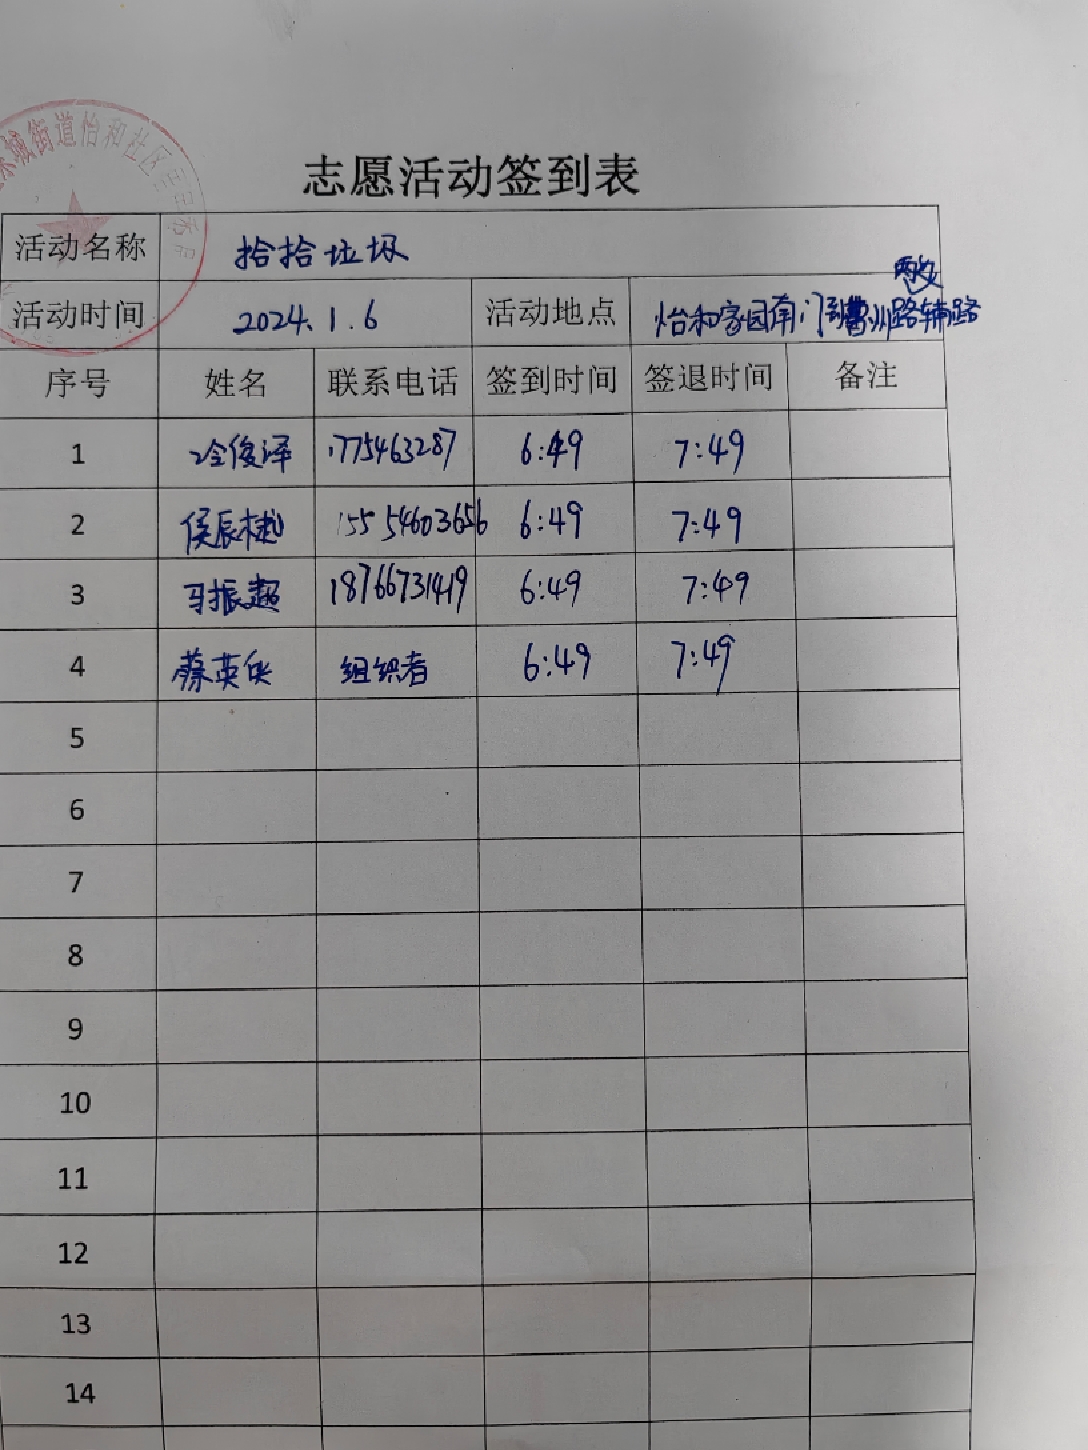 城街道怡和社区
志愿活动签到表
活动名称 拾拾垃圾
两边
活动时间 2024.1.6 活动地点 怡和家园南门到曹州路辅路
序号 姓名 联系电话 签到时间 签退时间 备注
1 冷俊泽 1775463287 6:49 7:49
2 侯辰樾 15554603656 6:49 7:49
3 马振超 18766731419 6:49 7:49
4 蔡英俊 组织者 6:49 7:49
5
6
7
8
9
10
11
12
13
14